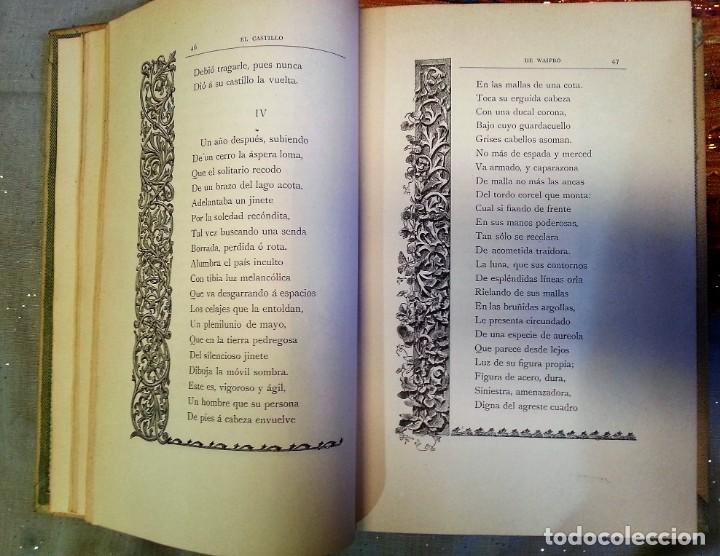 46
EL CASTILLO
Debió tragarle, pues nunca
Dió á su castillo la vuelta.
IV
Un año después, subiendo
De un cerro la áspera loma,
Que el solitario recodo
De un brazo del lago acota,
Adelantaba un jinete
Por la soledad recóndita,
Tal vez buscando una senda
Borrada, perdida ó rota.
Alumbra el país inculto
Con tibia luz melancólica
Que va desgarrando á espacios
Los celajes que la entoldan,
Un plenilunio de mayo,
Que en la tierra pedregosa
Del silencioso jinete
Dibuja la móvil sombra.
Este es, vigoroso y ágil,
Un hombre que su persona
De pies á cabeza envuelve
DE WAIFRO
47
En las mallas de una cota.
Toca su erguida cabeza
Con una ducal corona,
Bajo cuyo guardacuello
Grises cabellos asoman.
No más de espada y merced
Va armado, y caparazona
De malla no más las ancas
Del tordo corcel que monta:
Cual si fiando de frente
En sus manos poderosas,
Tan sólo se recelara
De acometida traidora.
La luna, que sus contornos
De espléndidas líneas orla
Rielando de sus mallas
En las bruñidas argollas,
Le presenta circundado
De una especie de aureola
Que parece desde lejos
Luz de su figura propia;
Figura de acero, dura,
Siniestra, amenazadora,
Digna del agreste cuadro
todocoleccion.net